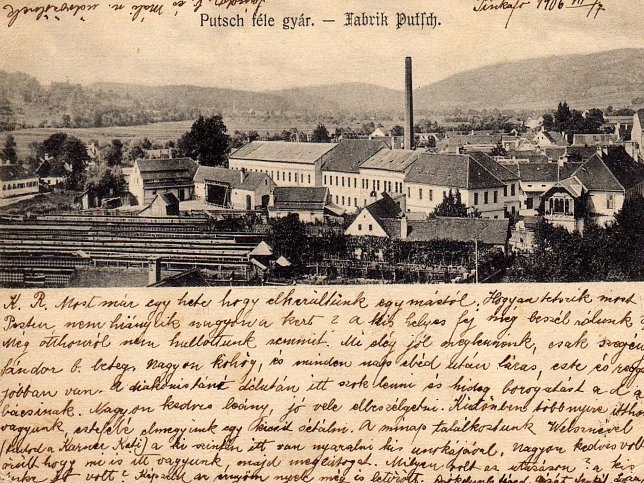 Putsch féle gyár. – Fabrik Putsch.
Sinkafő 1906
K. R. Most már egy hete hogy elkerültünk egymástól, Hogyan tetszik most
nem hiányzik nagyon a kert? a kis helyes fej még beszél rólunk?
Még otthonról nem hallottunk semmit. Mi elég jól megleszünk, csak szegény
Sándor b. beteg. Nagyon köhög, és minden nap ebéd után lázas, este és reggel
jobban van. A délután itt szok lenni és hideg borogatást a d.
bácsinak. Nagyon kedves leány, jó vele elbeszélgetni. Különben többnyire itthon
vagyunk estefelé elmegyünk egy kicsit sétálni. A minap találkoztunk
(tudod a Karner Kati) a ki szintén itt van nyaralni kis unokájával, Nagyon kedves volt
örült hogy mi is itt vagyunk, majd meglátogat. Milyen volt az utazáson? a kis
jó volt?